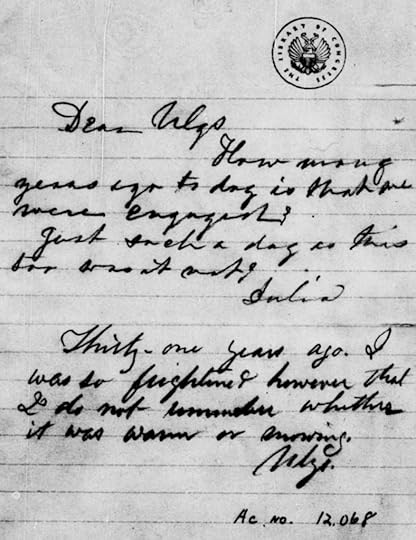 THE LIBRARY OF CONGRESS
Dear Ulys
How many
years ago to day is that we
were engaged?
Just such a day as this
too was it not?
Julia
Thirty-one years ago. I
was so frightened however that
I do not remember whether
it was warm or snowing.
Ulys.
Ac. no. 12,068